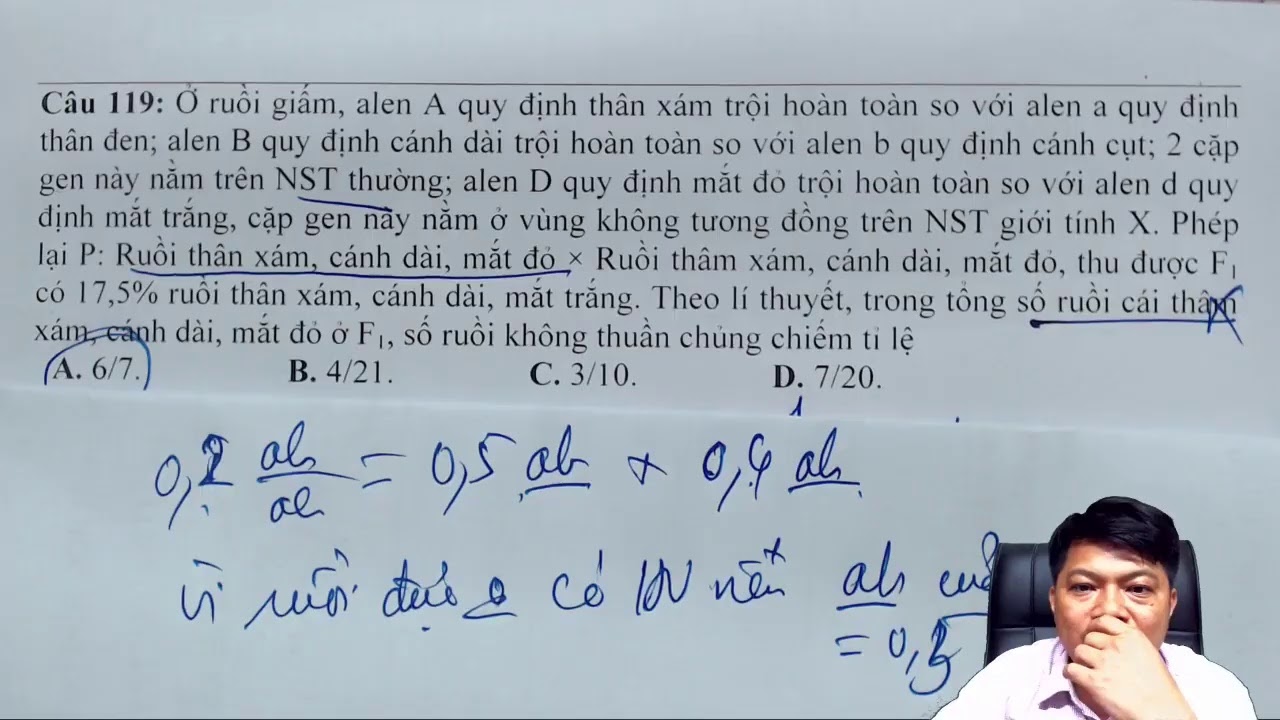 Câu 119: Ở ruồi giấm, alen A quy định thân xám trội hoàn toàn so với alen a quy định
thân đen; alen B quy định cánh dài trội hoàn toàn so với alen b quy định cánh cụt; 2 cặp
gen này nằm trên NST thường; alen D quy định mắt đỏ trội hoàn toàn so với alen d quy
định mắt trắng, cặp gen này nằm ở vùng không tương đồng trên NST giới tính X. Phép
lại P: Ruồi thân xám, cánh dài, mắt đỏ × Ruồi thâm xám, cánh dài, mắt đỏ, thu được F1
có 17,5% ruồi thân xám, cánh dài, mắt trắng. Theo lí thuyết, trong tổng số ruồi cái thâm
xám, cánh dài, mắt đỏ ở F1, số ruồi không thuần chủng chiếm tỉ lệ
A. 6/7. B. 4/21. C. 3/10. D. 7/20.
ab = 0,5 ab × 0,4 ab
vì ruồi đực có HV nên ab
= 0,